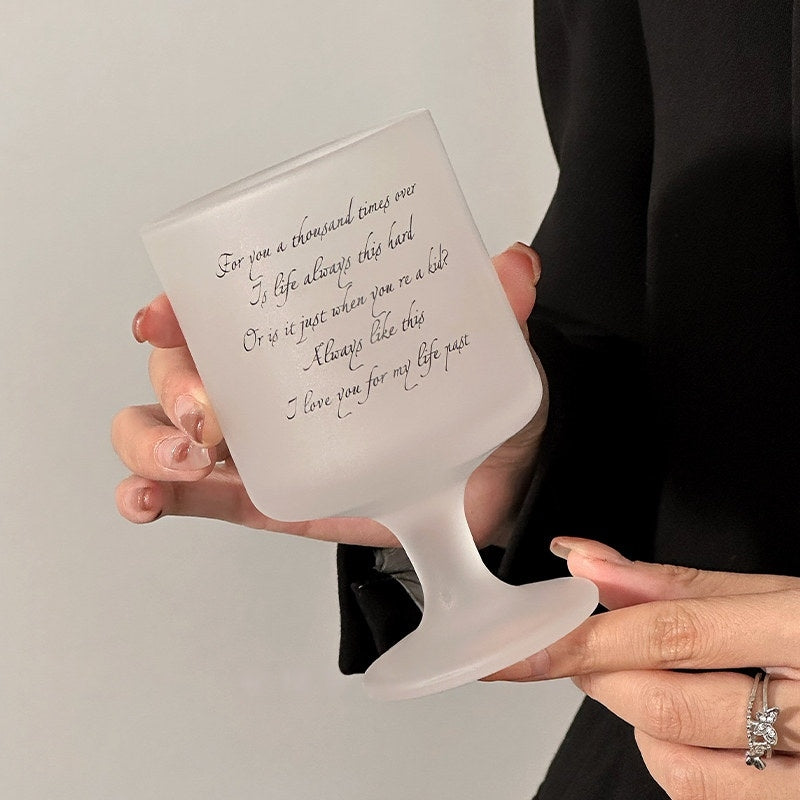 For you a thousand times over
Is life always this hard
Or is it just when you re a kid?
Always like this
I love you for my life past